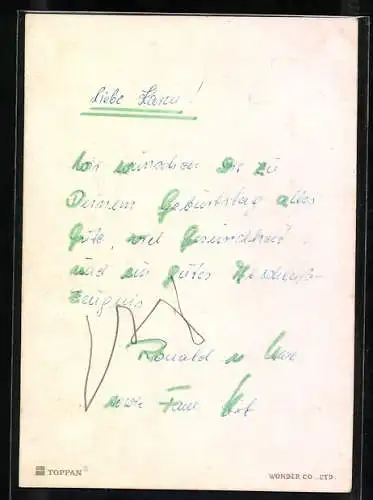 Liebe Karen!
Wir wünschen Dir zu
Deinem Geburtstag alles
Gute, viel Gesundheit
und ein gutes
zeugnis
Ronald u Uwe
sowie Fam
TOPPAN
WONDER CO., LTD.